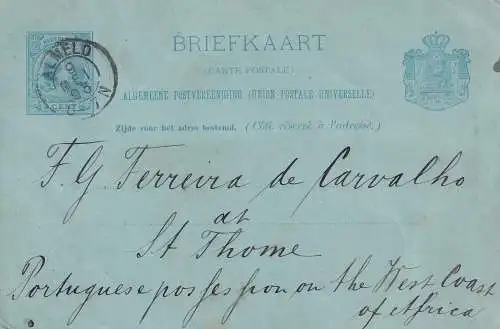 BRIEFKAART
(CARTE POSTALE)
ALGEMEENE POSTVEREENIGING (UNION POSTALE UNIVERSELLE)
Zijde voor het adres bestemd. (Côté réservé à l'adresse.)
ALMELO
CENT
F. G. Ferreira de Carvalho
at
St Thome
Portuguese possession on the West Coast
of Africa